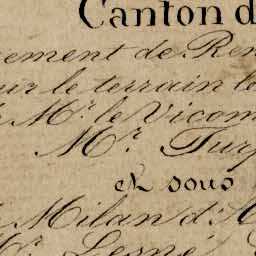 Canton d
ement de Ren
ur le terrain le
Mr. le Vicom
Mr. Turp
et sous
Milan d'A
Mr. Lesné